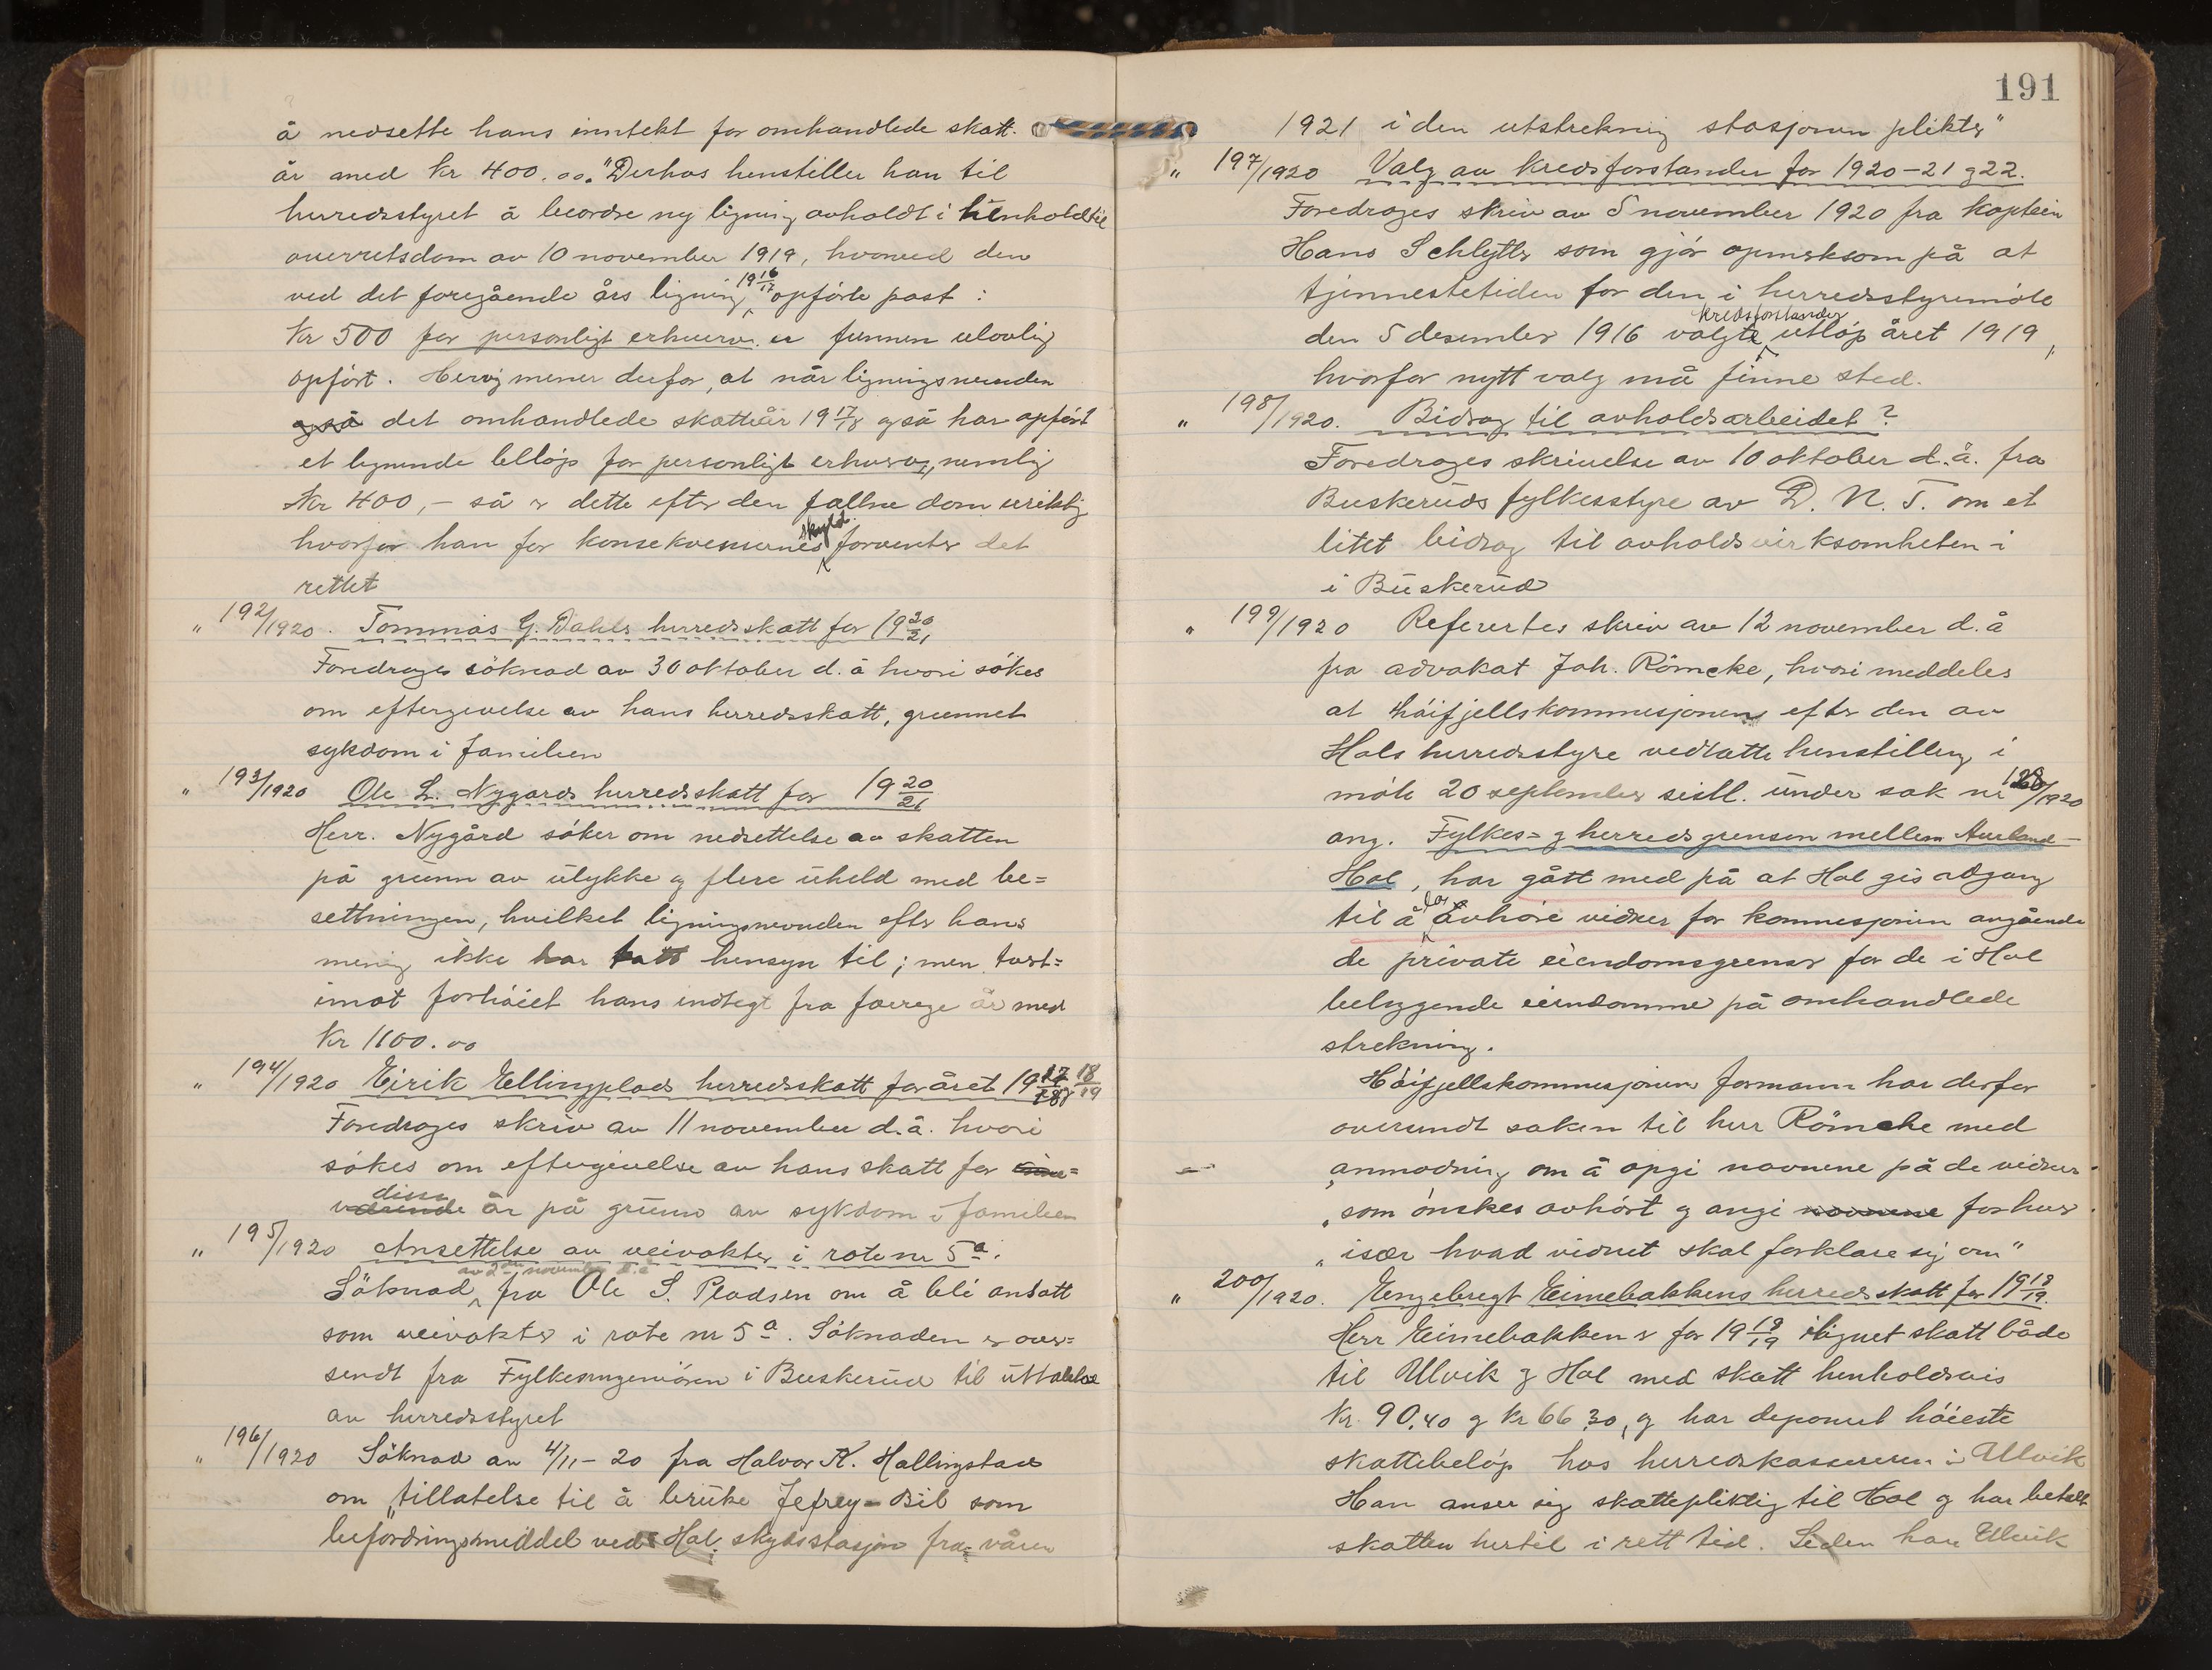 å nedsette hans inntekt for omhandlede skatt-
år med kr 400.oo." Derhos henstiller han til
herredsstyret å beordre ny ligning avholdt i henhold til
overretsdom av 10 november 1919, hvorved den
ved det foregående års ligning 19 16/17 opförte post :
Kr 500 for personligt erhverv er funnen ulovlig
opfört. Hervig mener derfor, at når ligningsnevnden
også det omhandlede skatteår 19 17/18 også har opfört
et lignende belöp for personligt erhverv, nemlig
Kr 400,- så er dette efter den fallne dom uriktig
hvorfor han for konsekvensernes skyld forventer det
rettet
" 192/1920. Tommas G. Dahls herredsskatt for 19 20/21
Foredroges söknad av 30 oktober d.å hvori sökes
om eftergivelse av hans herredsskatt, grunnet
sykdom i familien
" 193/1920 Ole L. Nygards herredsskatt for 19 20/21
Herr. Nygård söker om nedsettelse av skatten
på grunn av ulykke og flere uheld med be=
settningen, hvilket ligningsnevnden efter hans
mening ikke har tatt hensyn til; men tvert=
imot forhöiet hans indtegt fra forrige år med
Kr 1100.oo
" 194/1920 Eirik Ellingplads herredsskatt for året 19 17/18 18/19
Foredroges skriv av 11 november d.å. hvori
sökes om eftergivelse av hans skatt for inne=
værende disse år på grunn av sykdom i familien
" 195/1920 Ansettelse av veivokter i rote nr 5a.
Söknad av 2den november d.å fra Ole S. Pladsen om å bli ansatt
som veivokter i rote nr 5a. Söknaden er over=
sendt fra Fylkesingeniören i Buskerud til uttalelse
av herredsstyret
" 196/1920 Söknad av 4/11-20 fra Halvor K. Hallingstad
om "tillatelse til å bruke Jefrey-Bil som
befordringsmiddel ved Hol skydsstasjon fra våren
191
1921 i den utstrekning stasjonen plikter"
" 197/1920 Valg av kredsforstander for 1920-21 og 22.
Foredroges skriv av 5 november 1920 fra kaptein
Hans Schlytter som gjör opmerksom på at
tjennestetiden for den i herredsstyremöte
den 5 desember 1916 valgte kredsforstander utlöp året 1919,
hvorfor nytt valg må finne sted.
" 198/1920. Bidrag til avholdsarbeidet?
Foredroges skrivelse av 10 oktober d.å. fra
Buskeruds fylkesstyre av D. N. T. om et
litet bidrag til avholdsvirksomheten i
i Buskerud
" 199/1920 Referertes skriv av 12 november d.å
fra advokat Joh. Römcke, hvori meddeles
at höifjellskommisjonen efter den av
Hols herredsstyre vedtatte henstilling i
möte 20 september sistl. under sak nr 128/1920
ang. Fylkes= og herredsgrensen mellem Aurland-
Hol, har gått med på at Hol gis adgang
til å la avhöre vidner for kommisjonen angående
de private eiendomsgrenser for de i Hol
beliggende eiendomme på omhandlede
strekning.
Höifjellskommisjonens formann har derfor
oversendt saken til herr Römcke med
"anmodning om å opgi navnene på de vidner
"som önskes avhört og angi navnene for hver
"især hvad vidnet skal forklare sig om"
" 200/1920. Engebregt Eimebakkens herredsskatt for 19 18/19.
Herr Eimebakken er for 19 18/19 ilignet skatt både
til Ulvik og Hol med skatt henholdsvis
kr. 90,40 og kr 66.30, og har deponert höieste
skattebelöp hos herredskassereren i Ulvik
Han anser sig skattepliktig til Hol og har betalt
skatten hertil i rett tid. Siden har Ulvik